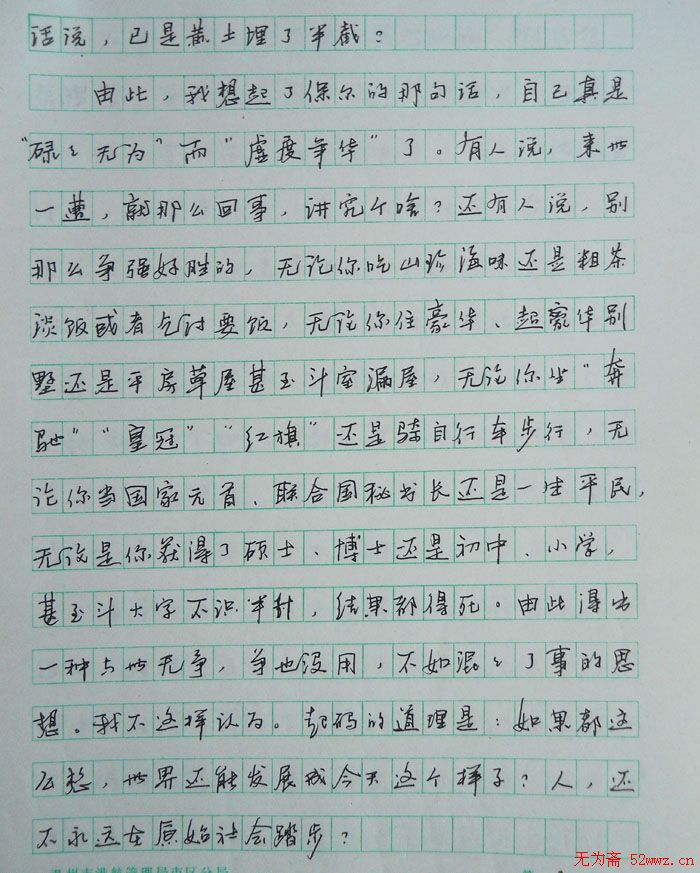 话说，已是黄土埋了半截？
由此，我想起了保尔的那句话，自己真是
“碌々无为”而“虚度年华”了。有人说，来世
一遭，就那么回事，讲究个啥？还有人说，别
那么争强好胜的，无论你吃山珍海味还是粗茶
淡饭或者乞讨要饭，无论你住豪华、超豪华别
墅还是平房草屋甚至斗室漏屋，无论你坐“奔
驰”“皇冠”“红旗”还是骑自行车步行，无
论你当国家元首、联合国秘书长还是一生平民，
无论是你获得了硕士、博士还是初中、小学，
甚至斗大字不识半升，结果都得死。由此得出
一种与世无争，争也没用，不如混々了事的思
想。我不这样认为。起码的道理是：如果都这
么想，世界还能发展成今天这个样子？人，还
不永远在原始社会踏步？
无为斋 52wwz.cn